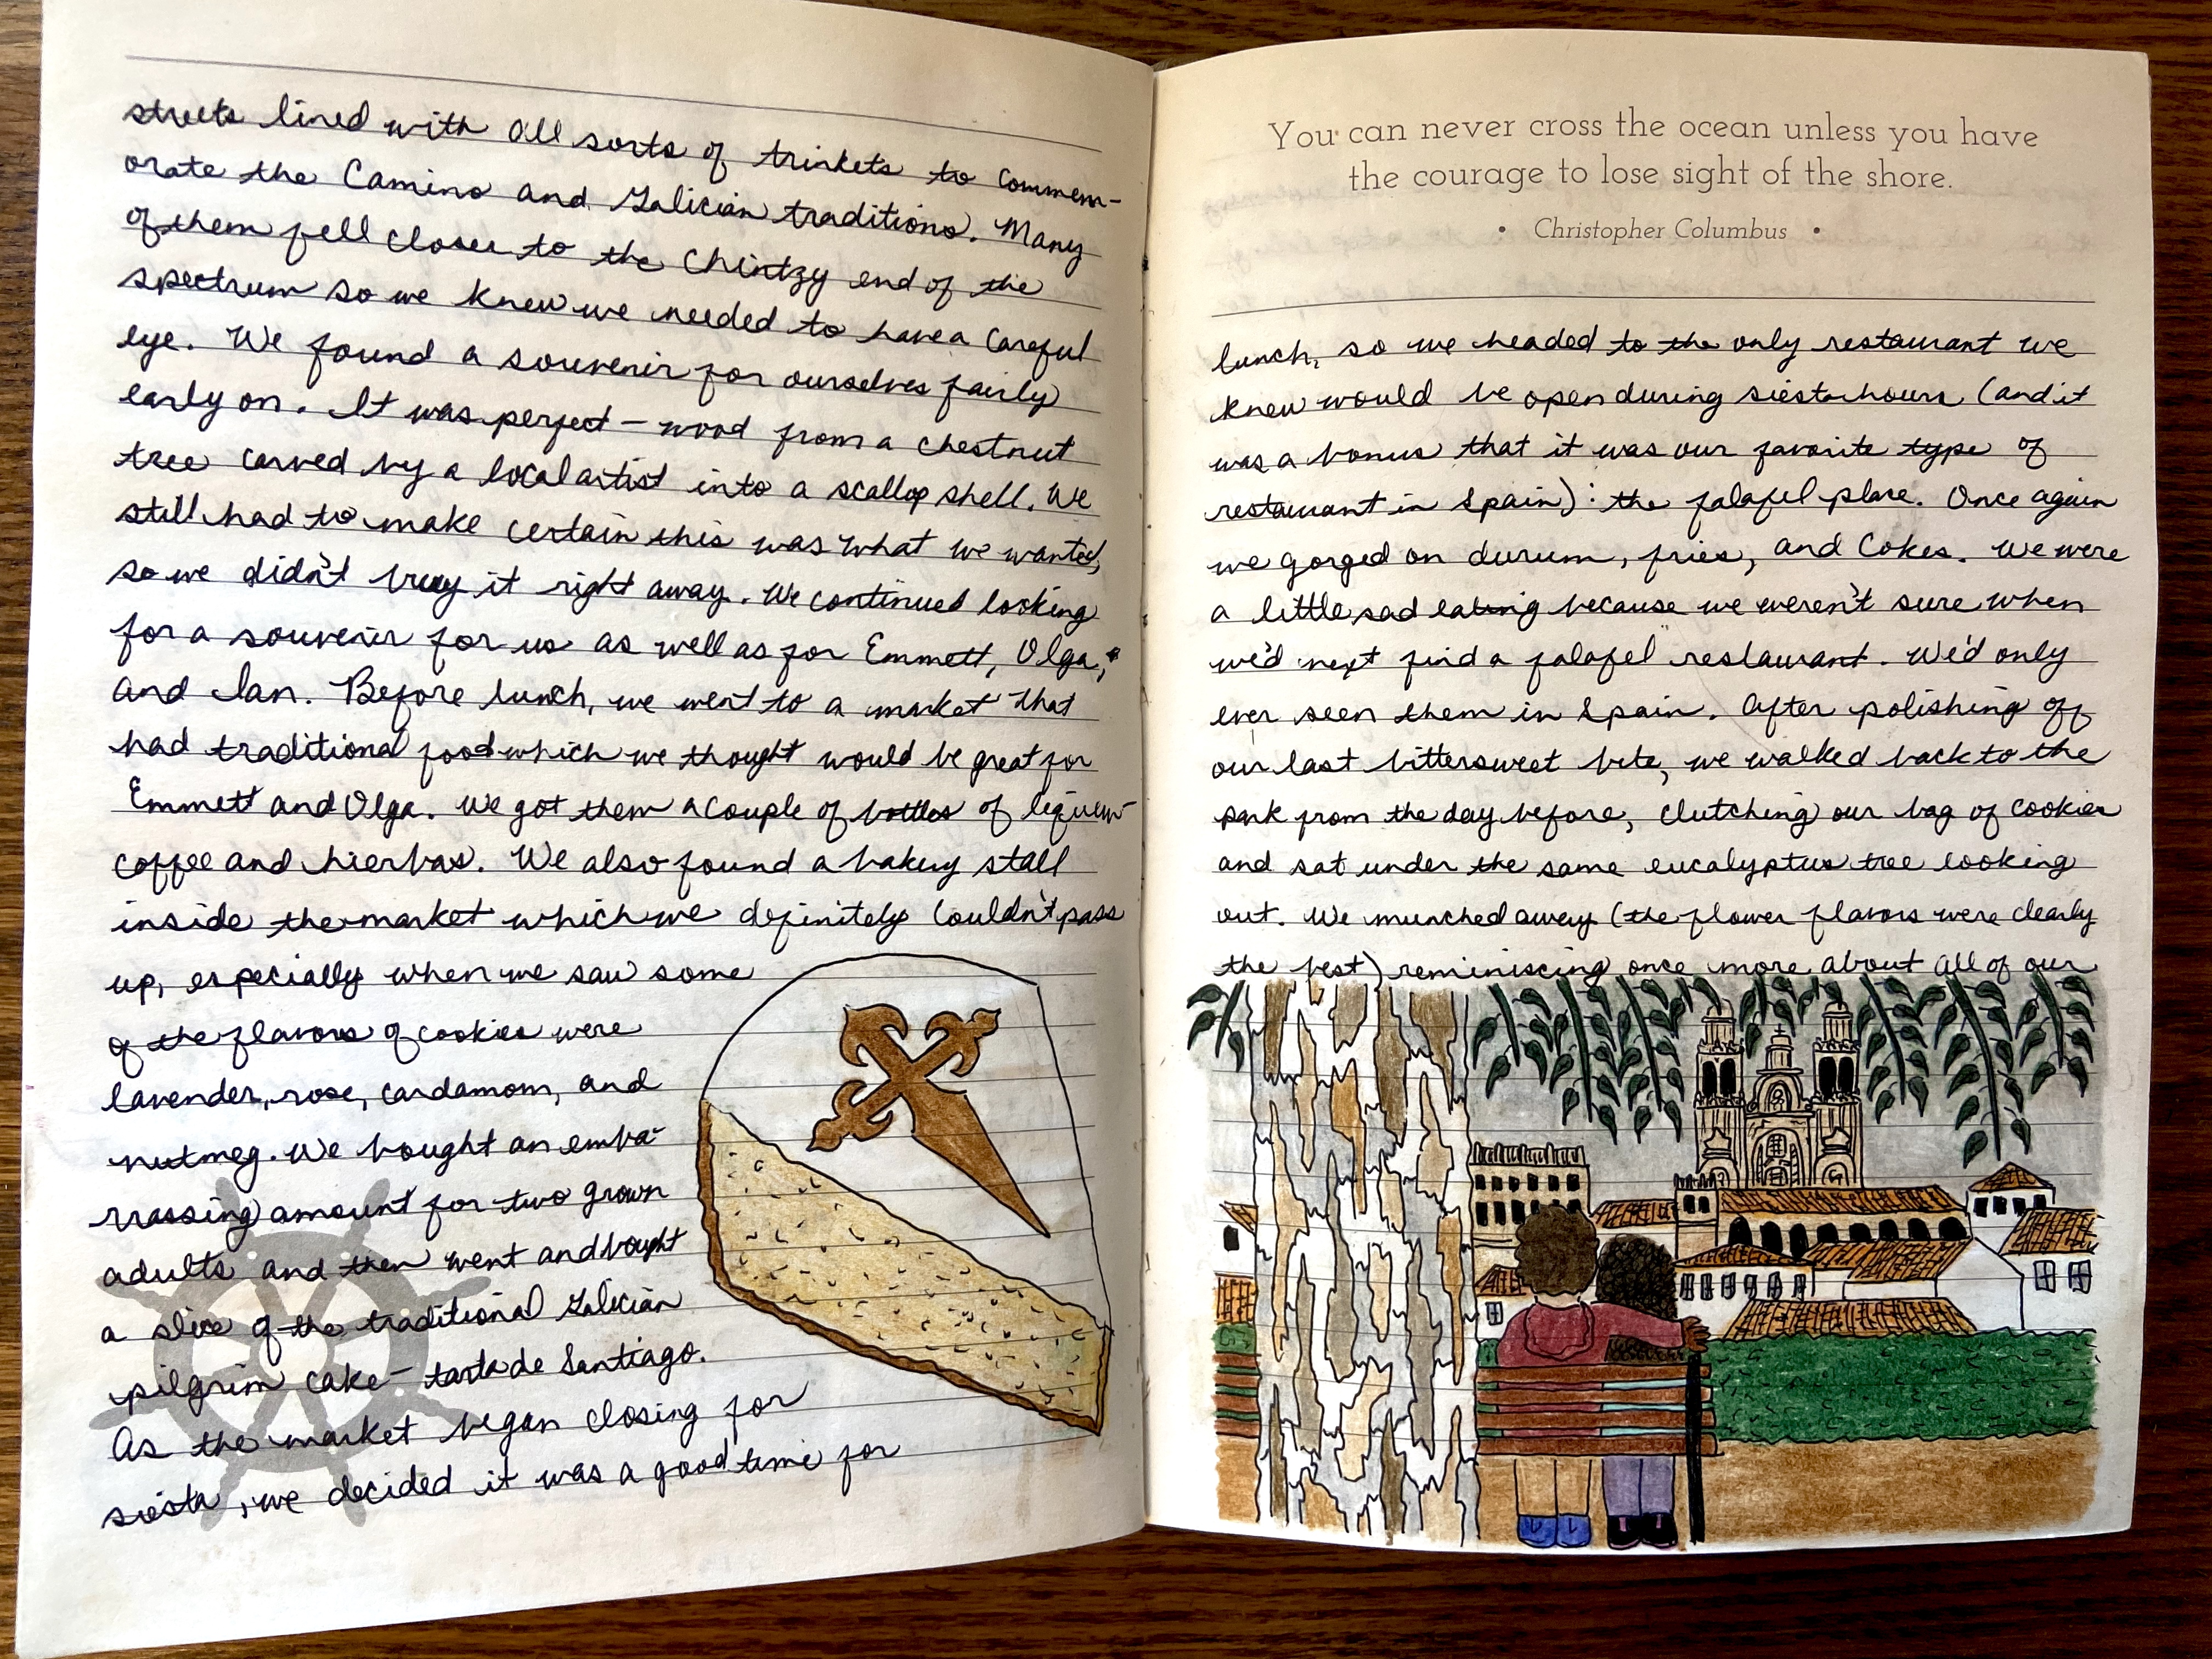 streets lined with all sorts of trinkets to commem-
orate the Camino and Galician traditions. Many
of them fell closer to the chintzy end of the
spectrum so we knew we needed to have a careful
eye. We found a souvenir for ourselves fairly
early on. It was perfect – wood from a chestnut
tree carved by a local artist into a scallop shell. We
still had to make certain this was what we wanted,
so we didn't buy it right away. We continued looking
for a souvenir for us as well as for Emmett, Olga,
and Ian. Before lunch, we went to a market that
had traditional food which we thought would be great for
Emmett and Olga. We got them a couple of bottles of liqueur-
coffee and hierbas. We also found a bakery stall
inside the market which we definitely couldn't pass
up, especially when we saw some
of the flavors of cookies were
lavender, rose, cardamom, and
nutmeg. We bought an emba-
rrassing amount for two grown
adults and then went and bought
a slice of the traditional Galician
pilgrim cake – tarta de Santiago.
As the market began closing for
siesta, we decided it was a good time for
You can never cross the ocean unless you have
the courage to lose sight of the shore.
• Christopher Columbus •
lunch, so we headed to the only restaurant we
knew would be open during siesta hours (and it
was a bonus that it was our favorite type of
restaurant in Spain): the falafel place. Once again
we gorged on durum, fries, and Cokes. We were
a little sad eating because we weren't sure when
we'd next find a falafel restaurant. We'd only
ever seen them in Spain. After polishing off
our last bittersweet bite, we walked back to the
park from the day before, clutching our bag of cookies
and sat under the same eucalyptus tree looking
out. We munched away (the flower flavors were clearly
the best) reminiscing once more about all of our